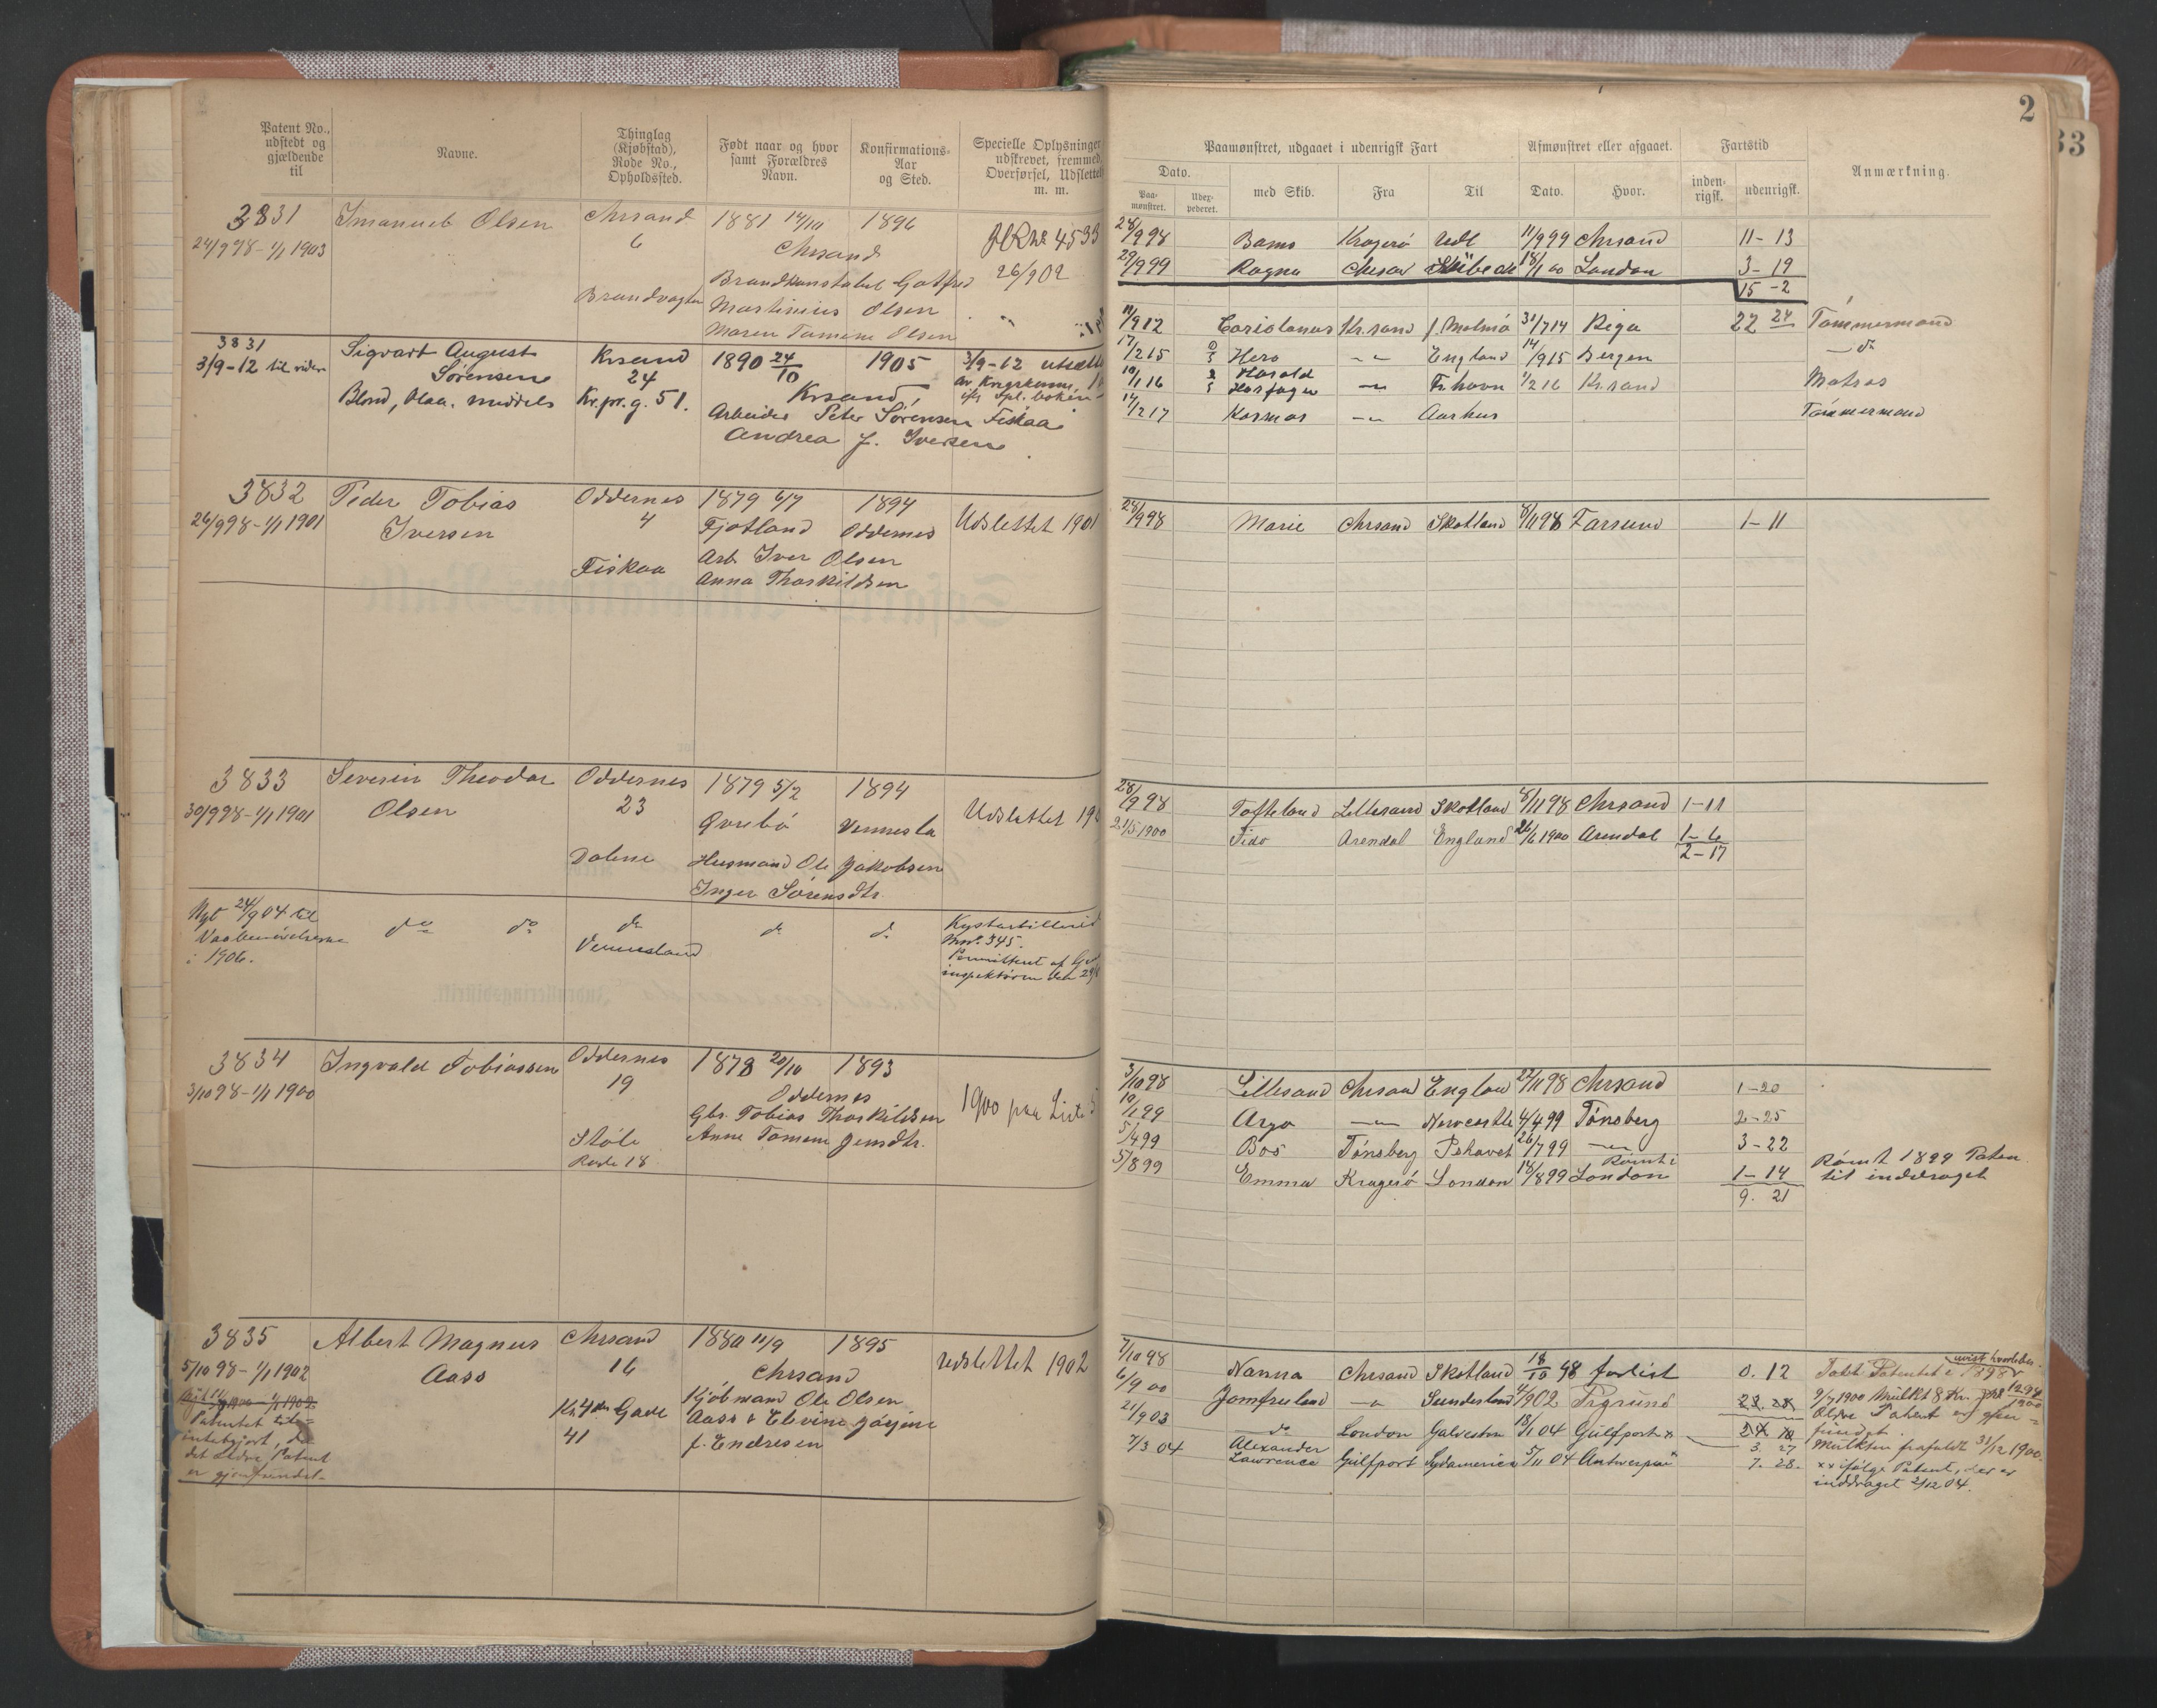 2
33
Patent No., udstedt og gjældende til
Navne.
Thinglag (Kjøbstad), Rode No., Opholdssted.
Født naar og hvor samt Forældres Navn.
Konfirmations-Aar og Sted.
Specielle Oplysninger udskrevet, fremmed, Overførsel, Udslettel m. m.
Paamønstret, udgaaet i udenrigsk Fart
Afmønstret eller afgaaet.
Fartstid
Anmærkning.
Dato.
Paamønstret.
Udexpederet.
med Skib.
Fra
Til
Dato.
Hvor.
indenrigsk.
udenrigsk.
3831 Imanuel Olsen Chrsand 1881 14/10 1896
24/9 98 - 1/1 1903 6 Chrsand No 4533
26/902
Brandvagten Brandkonstabel Gotfred
Martinius Olsen
Maren Tomine Olsen
28/9 98 Bams Kragerø Udl 11/9 99 Chrsand 11-13
29/9 99 Ragna Chrsa 18/1 00 London 3-19
15-2
3831 Sigvart August Krsand 1890 24/10 1905 3/9-12
3/9-12 til viden Sørensen 24 Krsand
Blond, blaa, middels Kr.pr.g. 51. Arbeider Peter Sørensen Fiskaa
Andrea f. Iversen
11/9 12 Coriolanus Kr.sand f. Malmö 31/7 14 Riga 22 24 Tømmermand
17/2 15 Hero -"- England 14/9 15 Bergen - do
10/1 16 Harald Haarfager -"- Fr.havn 1/2 16 Kr.sand Matros
14/2 17 Kosmos -"- Aarhus Tømmermand
3832 Peder Tobias Oddernes 1879 6/7 1894
26/9 98 - 1/1 1901 Iversen 4 Fjotland Oddernes Udslettet 1901
Fiskaa Arb. Iver Olsen
Anna Thorkildsen
28/9 98 Marie Chrsand Skotland 8/11 98 Farsund 1-11
3833 Severin Theodor Oddernes 1879 5/2 1894
30/9 98 - 1/1 1901 Olsen 23 Øvrebö Vennesla Udslettet 190
Dalene Husmand Ole Jakobsen
Inger Sørensdtr.
28/9 98 Tofteland Lillesand Skotland 8/11 98 Chrsand 1-11
21/5 1900 Fido Arendal England 26/6 1900 Arendal 1-6
2-17
Nyt 24/9 04 til do do do do do Kystartilleriet
Vaabenøvelserne Mnr. 345.
i 1906. Permitteret af
inspektøren den
3834 Ingvald Tobiassen Oddernes 1878 20/10 1893
3/10 98 - 1/1 1900 19 Oddernes 1900 paa Liste
Gbr. Tobias Thorkildsen
Støle Anne Tomine Jensdtr.
Rode 18
3/10 98 Lillesand Chrsand England 22/11 98 Chrsand 1-20
10/1 99 Argo -"- Newcastle 4/4 99 Tönsberg 2-25
5/4 99 Bos Tønsberg 26/7 99 -"- 3-22
5/8 99 Emma Kragerö London 18/8 99 Rømt i London 1-14 Rømt 1899 Paten
9. 21 tet inddraget
3835 Albert Magnus Chrsand 1880 11/9 1895
5/10 98 - 1/1 1902 Aass 16 Chrsand Udslettet 1902
Patentet Kjøbmand Ole Olsen
intetgjort, da Kr. 4de Gade Aass & Elevine Jørgine
det ældre Patent 41 f. Endresen
er gjenfundet.
7/10 98 Nanna Chrsand Skotland 18/10 98 forlist 0. 12 Tabt Patentet i 1898
uvist hvorledes.
6/9 00 Jomfruland -"- Sunderland 4/9 02 Prgrund 23. 28 9/7 1900 Mulkt 8 Kr.
ældre Patent er gjen=
21/9 03 do London Galveston 18/1 04 Gulfport x 24 10 fundet.
7/3 04 Alexander 3. 27 Mulkten frafaldt 31/12 1900.
Lawrence Gulfport Sydamerica 5/11 04 Antwerpen 7. 28. xx ifølge Patent, der er
inddraget 2/12 04.